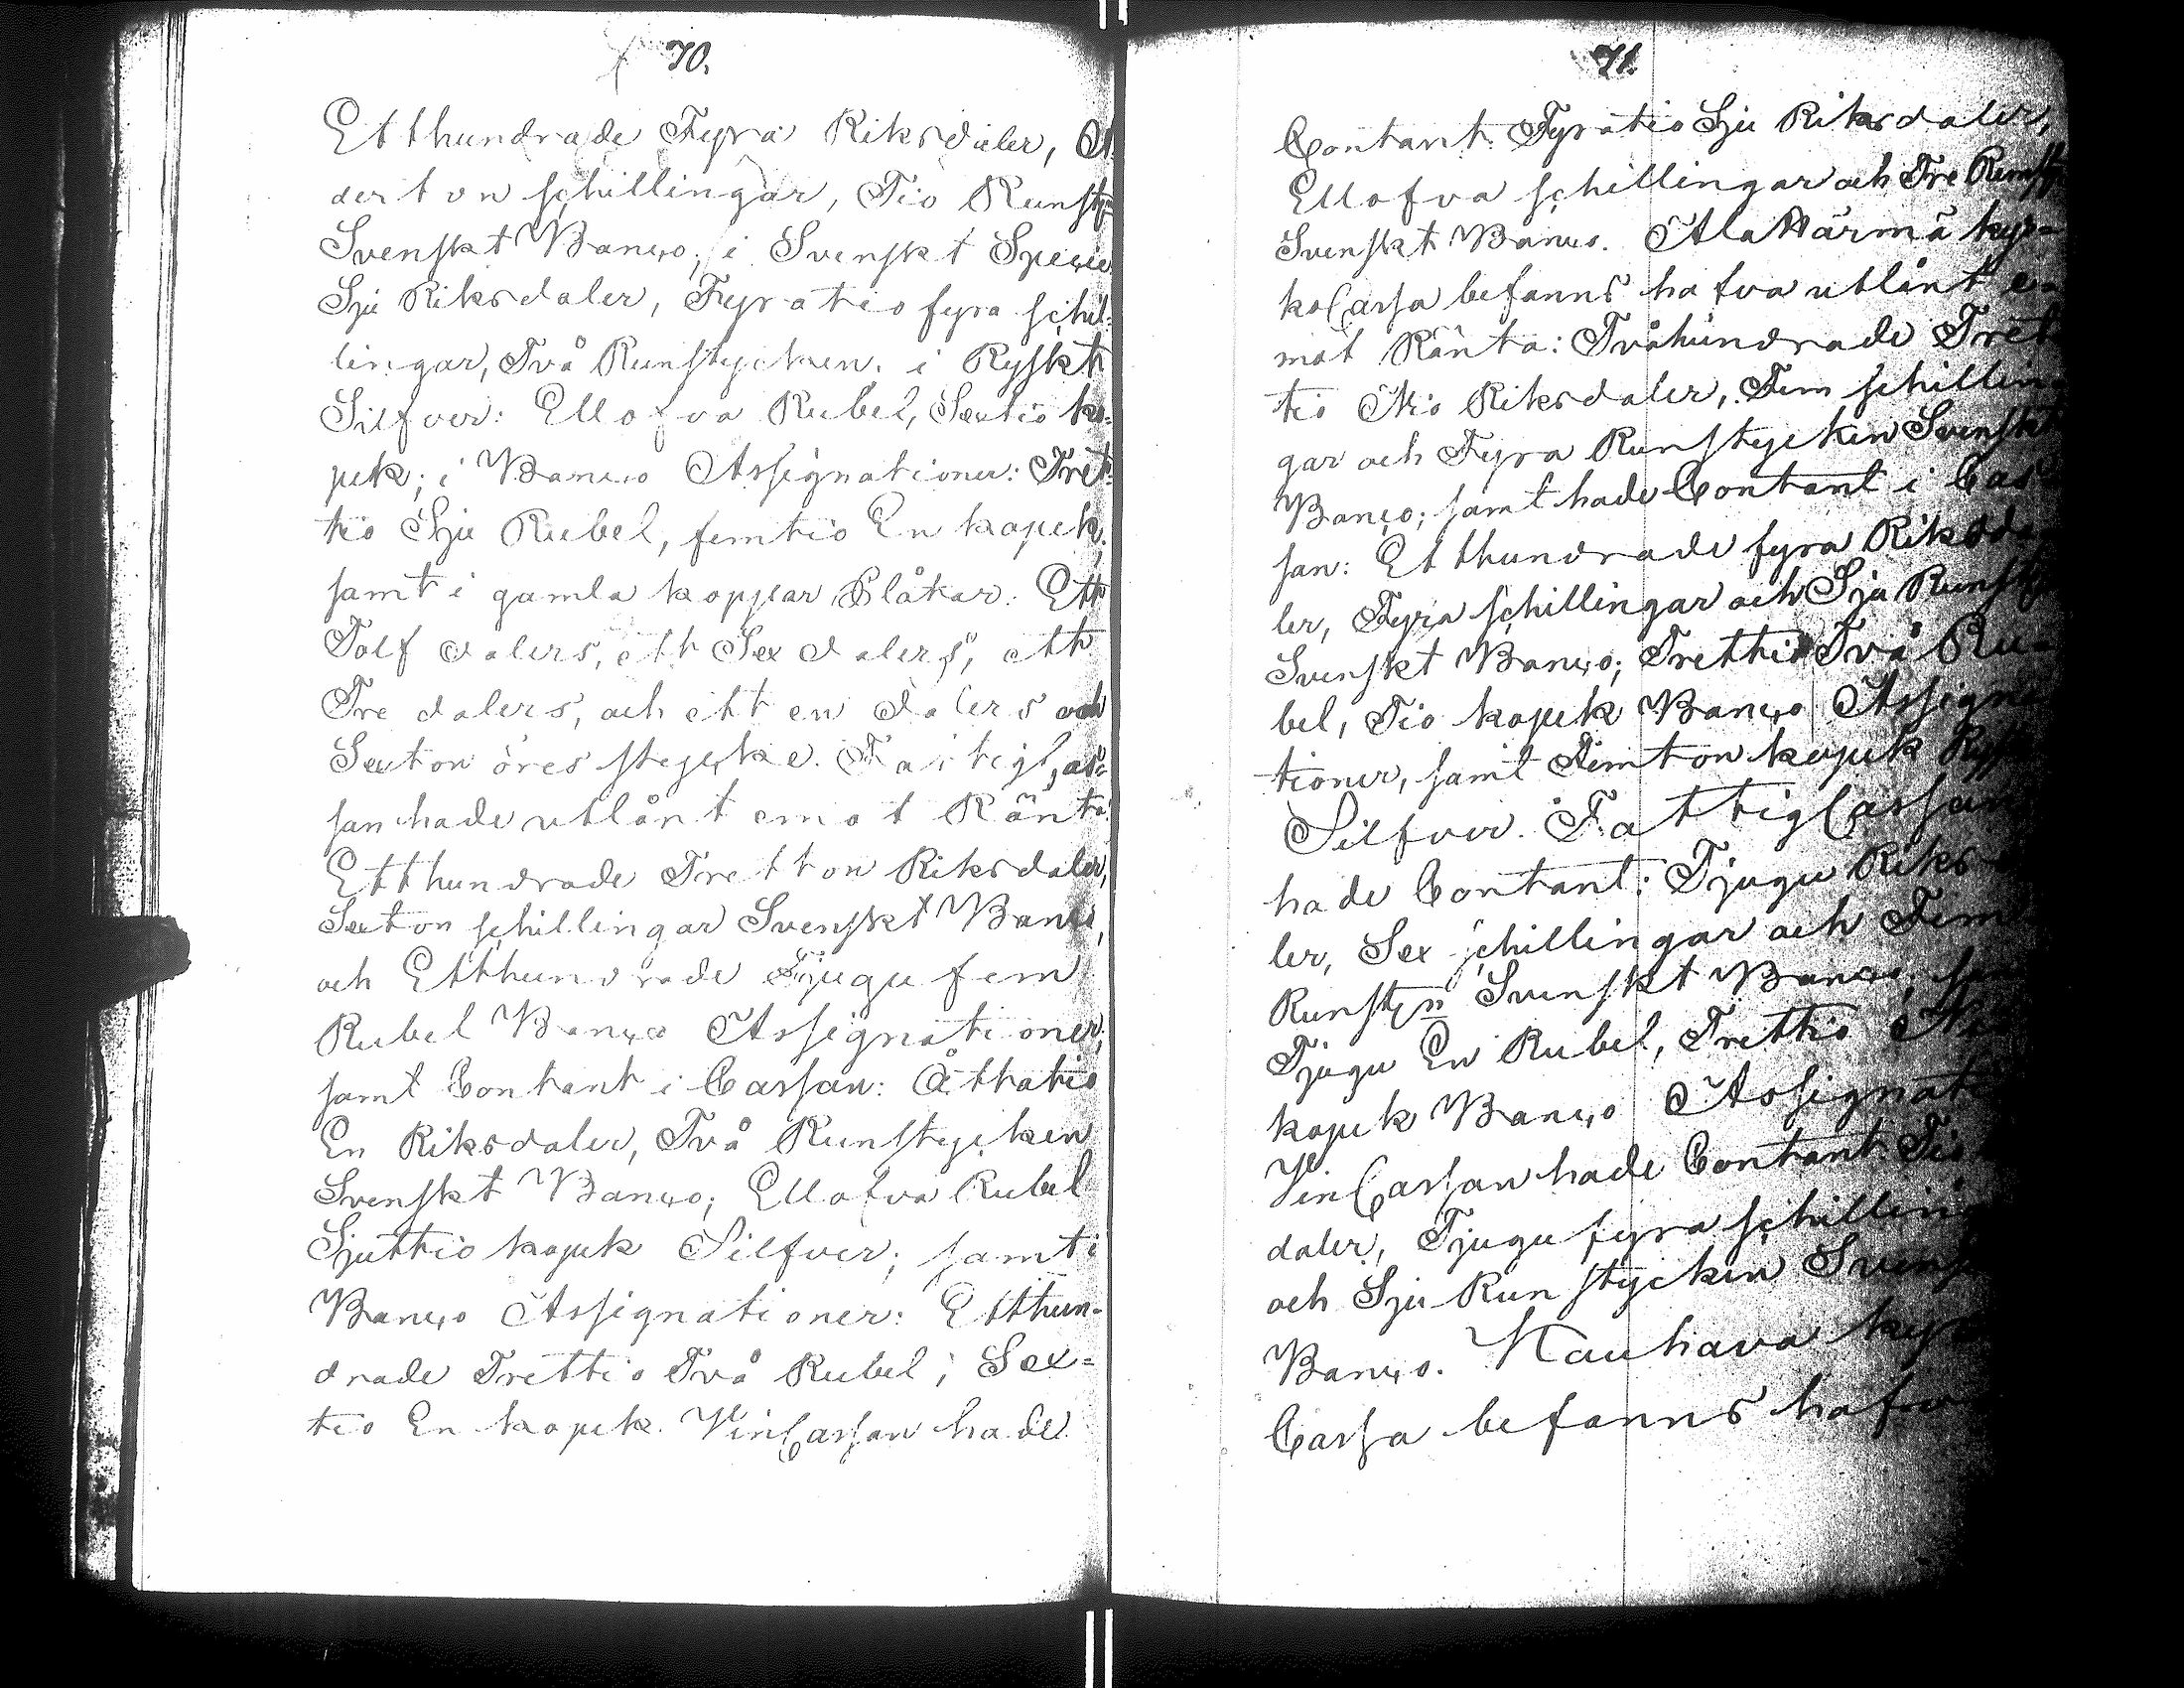 70.
Etthundrade Fyra Riksdaler, A
derton schillingar, Tio Runst
Svenskt Banco; i Svenskt Specie
Sju Riksdaler, Fyratio fyra schil=
lingar, Två Runstycken. i Ryskt
Silfver: Ellofva Rubel, Sextio ko=
pek; i Banco Assignationer: Tret=
tio Sju Rubel, femtio En kopek,
samt i gamla koppar Plåtar: Ett
Tolf dalers, ett Sex dalers, ett
Tre dalers, och ett en dalers och
Sexton öres stycke. FattigCas=
san hade utlånt emot Ränta
Etthundrade Tretton Riksdaler,
Sexton schillingar Svenskt Banco,
och Etthundrade Tjugu fem
Rubel Banco Assignationer,
samt Contant i Cassan: Åttatio
En Riksdaler, Två Runstycken
Svenskt Banco; Ellofva Rubel
Sjuttio kopek Silfver; samt i
Banco Assignationer: Etthun=
drade Trettio Två Rubel; Sex=
tio En kopek. VinCassan hade
71.
Contant: Fyratio Sju Riksdaler,
Ellofva schillingar och Tre Runst
Svenskt Banco. Ala Härmä kyr=
koCassa befanns hafva utlånt e=
mot Ränta: Tvåhundrade Tret
tio Nio Riksdaler, Fem schillin
gar och Fyra Runstycken Svenskt
Banco; samt hade Contant i Cas
san: Etthundrade fyra Riksda
ler, Fyra schillingar och Sju Runsty
Svenskt Banco; Trettio Två Ru=
bel, Tio kopek Banco Assigna
tioner, samt Femton kopek Ryskt
Silfver. FattigCassan
hade Contant: Tjugu Riks
ler, Sex schillingar och Fem
Runstn Svenskt Banco;
Tjugu En Rubel, Trettio
kopek Banco Assignat
VinCassan hade Contant: Tio
daler, Tjugu fyra schilling
och Sju Runstycken Svensk
Banco. Kauhava kyr
Cassa befanns hafva